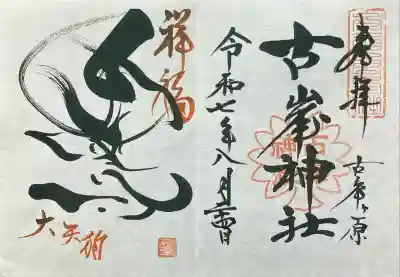 奉拝
古峯ヶ原
古峯神社
令和七年八月吉日
祥福
大天狗